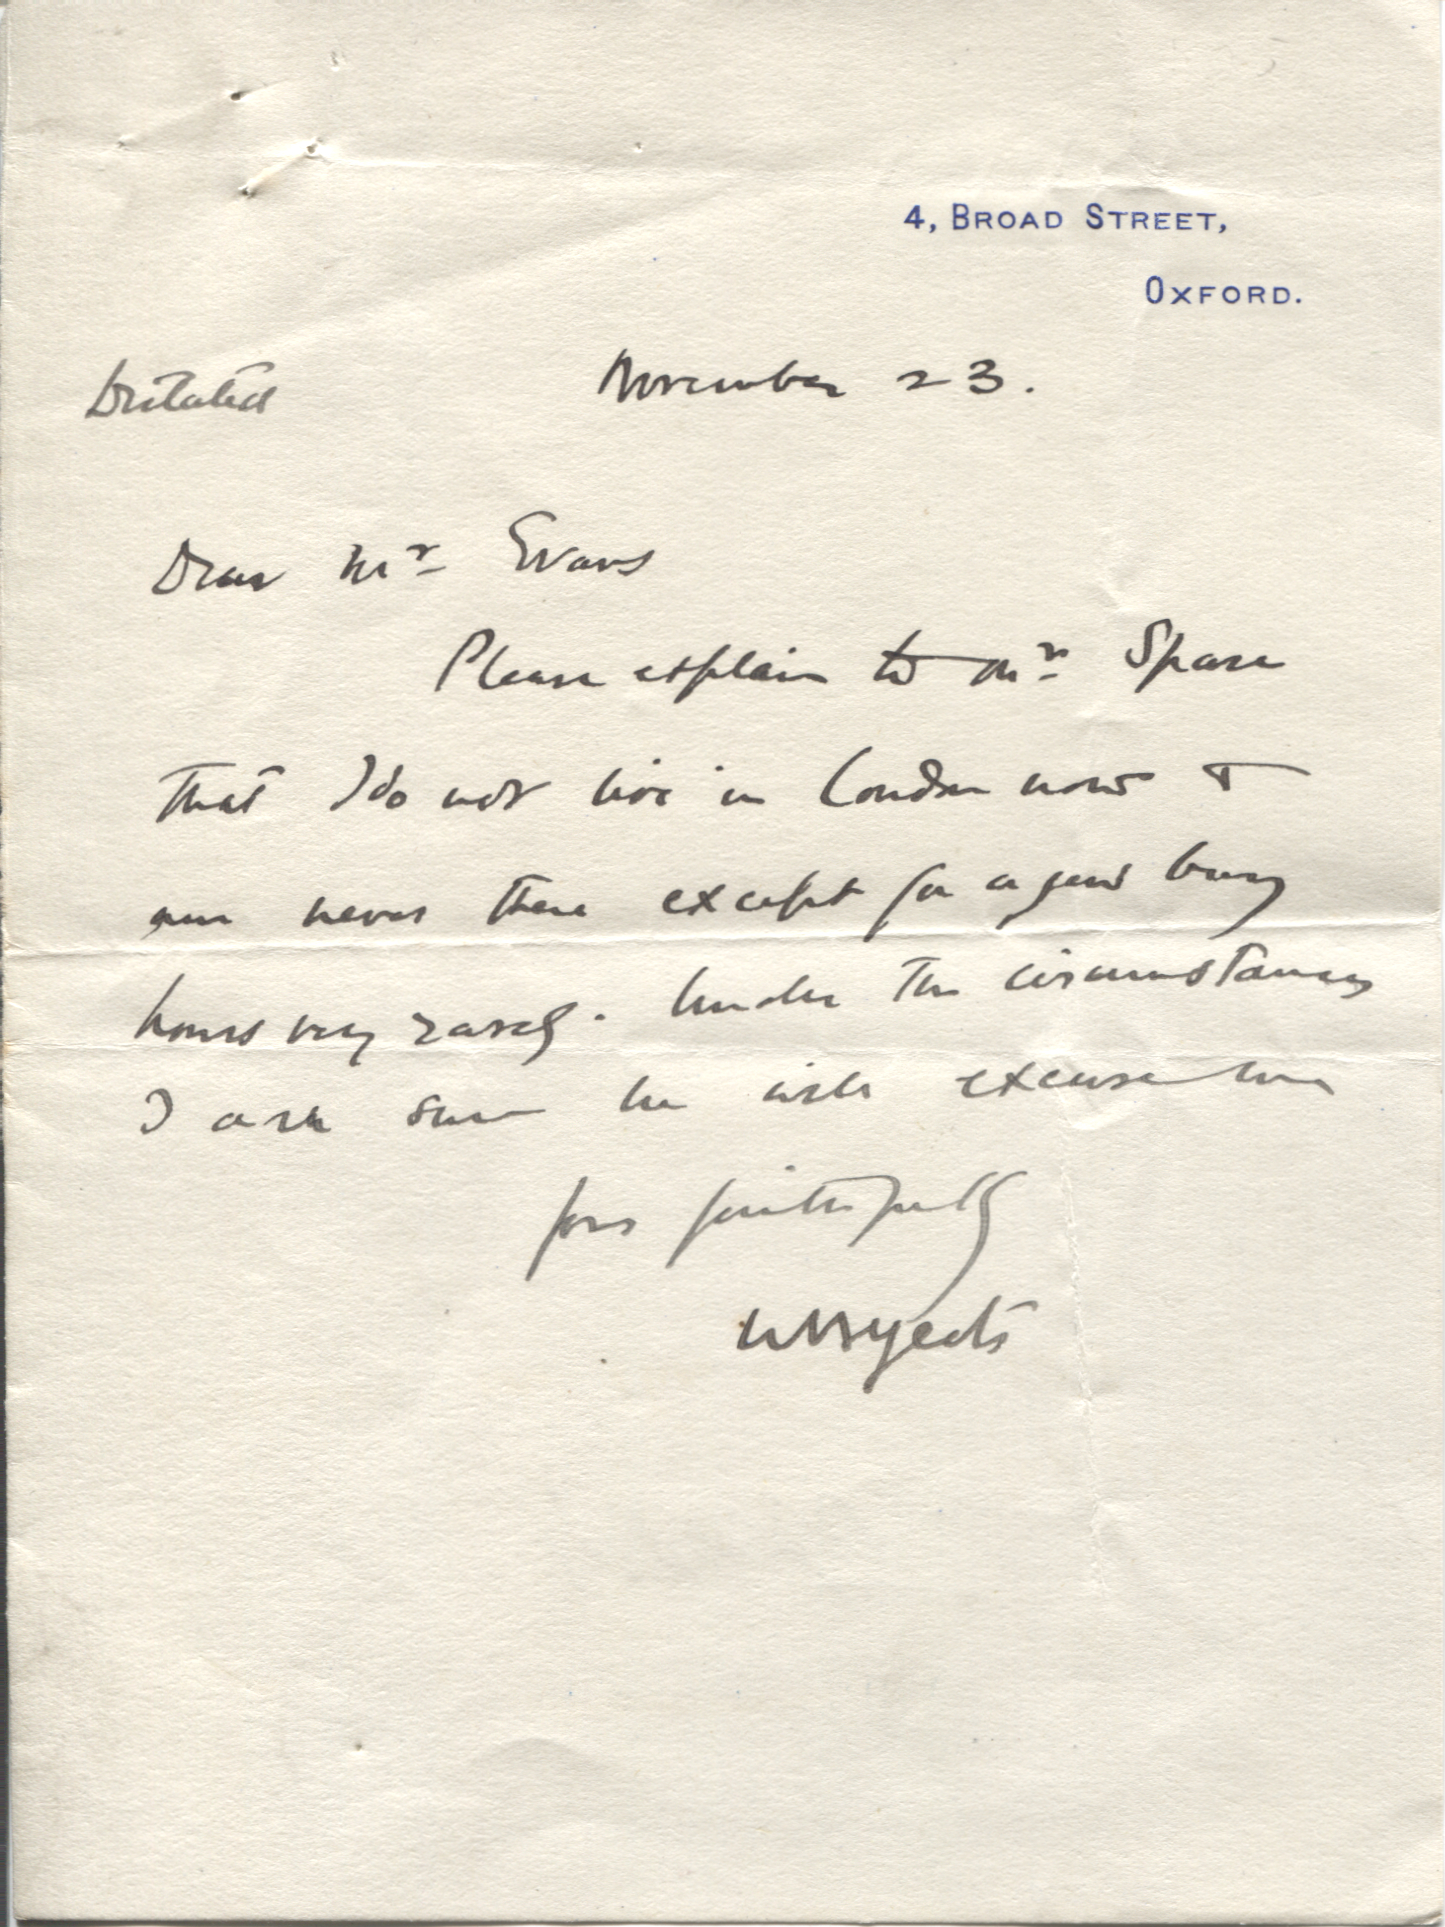 4, BROAD STREET,
OXFORD.
Dictated November 23.
Dear Mr Evans
Please explain to Mr Spare
that I do not live in London now &
am never there except for a few busy
hours very rarely. Under the circumstances
I am sure he will excuse me
Yrs faithfully
WBYeats